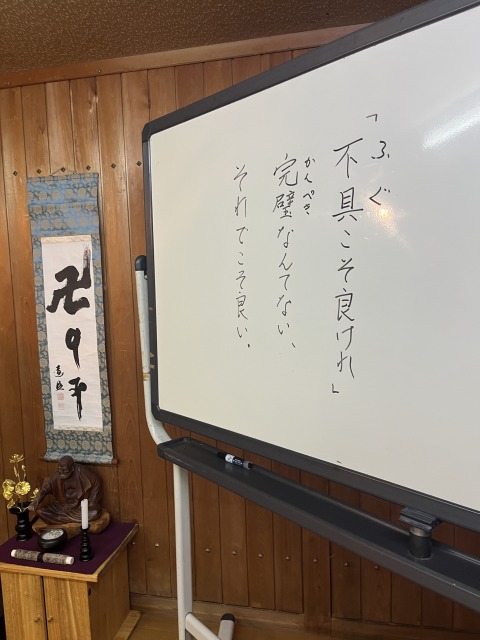 「ふぐ
不具こそ良けれ」
かんぺき
完璧なんてない、
それでこそ良い。
卍の平